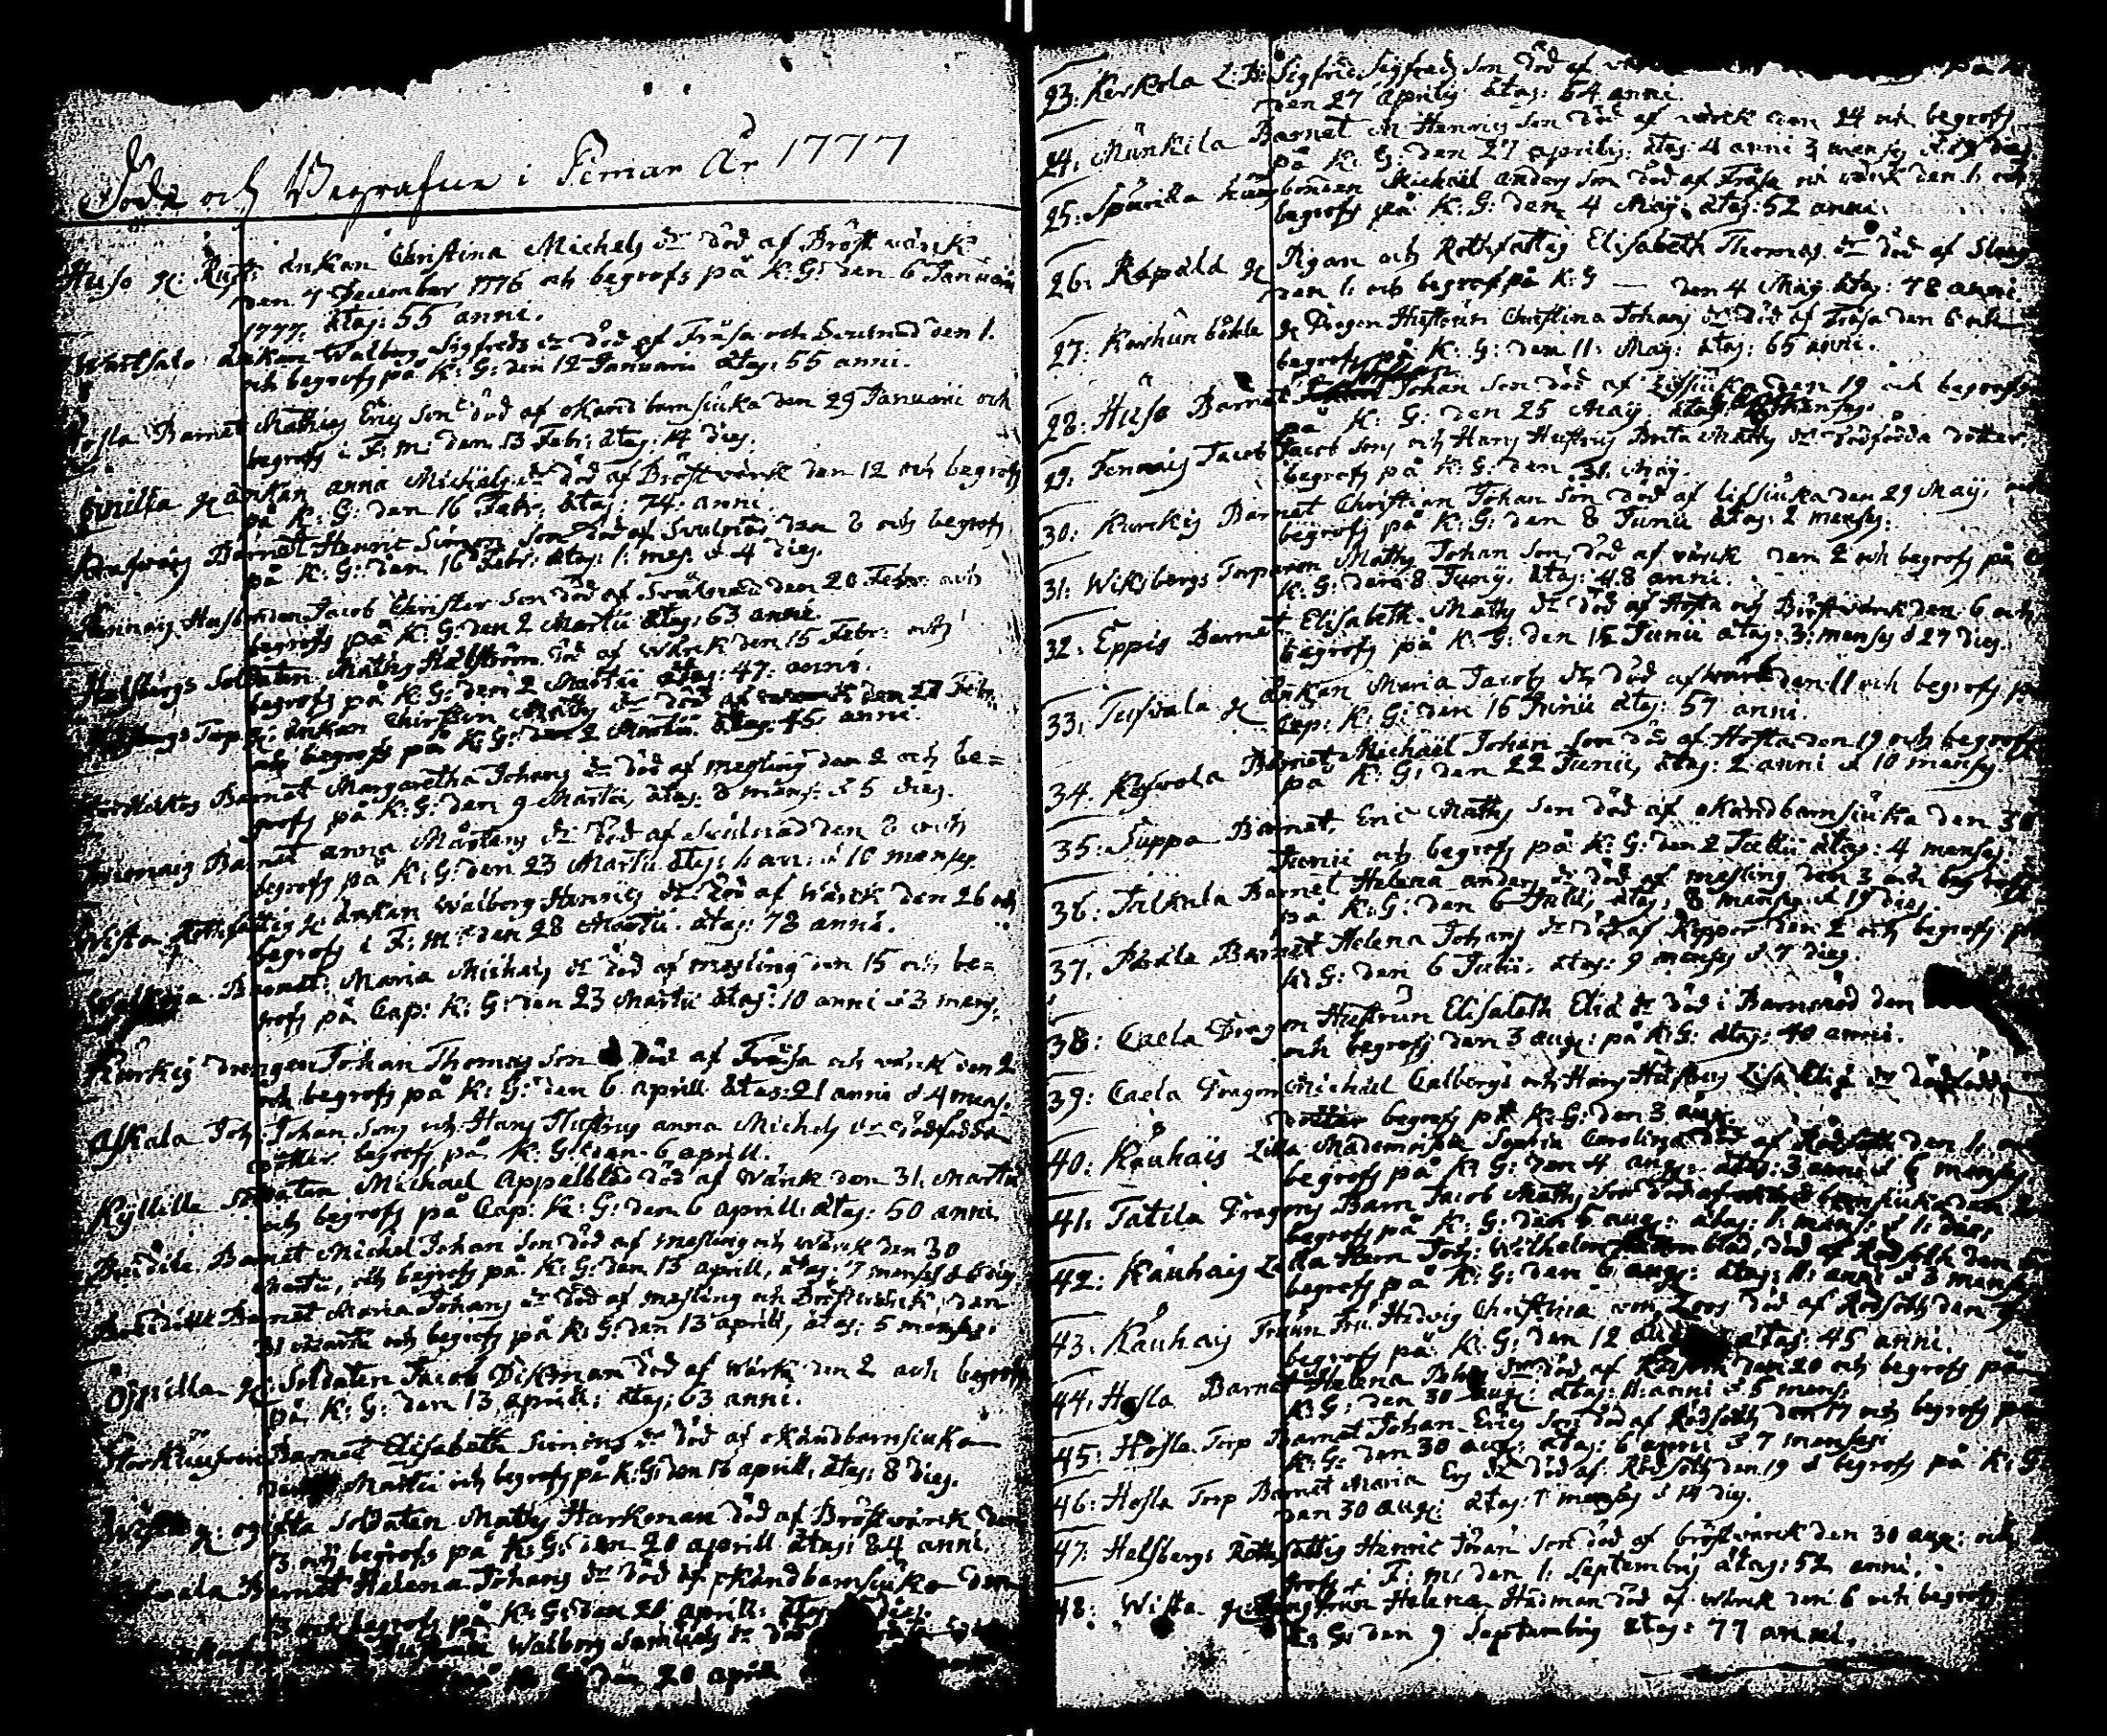 Döde och Begrafne i Pemar År 1777
Huso g: Rust: änkan Christina Michels dr död af Bröst värck
den 7 December 1776 och begrofs på K: G: den 6 Januarii
1777. ætat: 55 anni.
änkan Walborg Sigfreds dr död af Fråsa och Svulnad den 1.
och begrofs på K: G: den 12 Januarii ætat: 55 anni.
Barnet Mathias Erics son död af okänd barnsiuka den 29 Januarii och
begrofs i F: m: den 13 Febr: ætat: 14 dies.
g änkan anna Michels dr död af Bröstvärck den 12 och begrofs
på K: G: den 16 Febr: ætat: 74 anni
Barnet Henric Simons son död af Svulnad den 8 och begrofs
på K: G: den 16 Febr: ætat: 1: mes. & 4 dies.
Husbonden Jacob Christer son död af Svulnad den 20 Febr: och
begrofs på K: G: den 2 Martii ætat: 63 anni.
Soldaten Maths Hälström död af Wärk den 15 Febr: och
begrofs på K: G: den 2 Martii ætat: 47: anni.
Torp g: änkan Christin Maths dr död af den 27 Febr:
och begrofs på K: G: den 2 Martii ætat: 45 anni.
Barnet Margaretha Johans dr död af mesling den 2 och be=
grofs på K: G: den 9 Martii, ætat: 8 mens: & 5 dies.
Barnet anna Mårtens dr död af Svulnad den 8 och
begrofs på K: G: den 23 Martii ætat: 1: an: & 10 menses.
Wista Rothfattig g: änkan Walborg Henrics dr död af Wärck den 26 och
begrofs i F: m: den 28 Martii ætat: 78 anni.
Barnet: Maria Michels dr död af mesling den 15 och be=
grofs på Cap: K: G: den 23 Martii ætat: 10 anni & 3 mens.
Kurkis drengen Johan Thomas son död af Fråsa och värck den 2
och begrofs på K: G: den 6 aprill ætat: 21 anni & 4 mens.
Askala Joh: Johan sons och Hans Hustrus anna Michels dr dödfödda
dotter begrofs på K: G: den 6 aprill.
Kyllilä Soldaten Michael Appelblad död af Wärck den 31 Martii
och begrofs på Cap: K: G: den 6 aprill: ætat: 50 anni,
Barnet Michel Johan son död af mesling och Wärck den 30
Martii, och begrofs på K: G: den 13 aprill, ætat: 7 menses & 6 dies
Barnet Maria Johans dr död af mesling och Bröstvärck, den
31 Martii och begrofs på K: G: den 13 aprill, ætat: 5 menses:
g: Soldaten Jacob Dickman död af Wärk den 2 och begrofs
på K: G: den 13 aprill: ætat: 63 anni.
Barnet Elisabeth Simons dr död af okändbarnsiuka
den Martii och begrofs på K: G: den 13 aprill, ætat: 8 dies.
Wista g: ogifta Soldaten Maths Harkonan död af Bröstvärck den
13 och begrofs på K: G: den 20 aprill ætat: 84 anni.
Caela Barnet Helena Johans dr död af okändbarnsiuka den
13 och begrofs på K: G: den 20 aprill: ætat: dies.
Walborg Samuels dr död
den 20 aprill
23: Kerkola Sigfrid Sigfreds son död af
den 27 Aprilis ætat: 64 anni.
24: Munkila Barnet M Henrics son död af värck den 24 och begrofs
på K: G: den 27 aprilis, ætat: 4 anni 3 menses &
25: Spurila husbonden Michael anders son död af Fråsa och värck den 1: och
begrofs på K: G: den 4 Maij ætat: 52 anni.
26: Rapala g Pigan och Rothfattig Elisabeth Thomas dr död af Slag
den 1: och begrofs på K: G — den 4 Maij ætat: 78 anni.
27: g Dragon Hustrun Christina Johans dr död af Fråsa den 6 och
begrofs på K: G: den 11: Maij: ætat: 65 anni.
28: Huso Barnet Johan son död af Lifsiuka den 19 och begrofs
på K: G: den 25 Maij, ætat:
29: Jacob Jacob sons och Hans Hustrus Brita Maths dr dödfödda dotter
begrofs på K: G: den 31 Maij.
30: Kurckis Barnet Christian Johan Son död af lifsiuka den 29 Maij, och
begrofs på K: G: den 8 Junii ætat: 2 menses.
31: Wiksbergs Torparen Maths Johan son, död af värck den 2 och begrofs på
K: G: den 8 Junij, ætat: 48 anni.
32: Eppis Barnet Elisabeth Maths dr död af Hosta och Bröstvärck den 6 och
begrofs på K: G: den 15 Junii ætat: 3: menses & 27 dies.
33: g änkan Maria Jacobs dr död af wärck den 11 och begrofs på
Cap: K: G: den 16 Junii ætat: 57 anni.
34: Barnet Michaël Johan son död af Hosta den 19 och begrofs
på K: G: den 22 Junii, ætat: 2 anni & 10 menses.
35: Juppa Barnet, Eric Maths son död af okändbarnsiuka den 30
Junii och begrofs på K: G: den 2 Julii ætat: 4 menses.
36: Barnet Helena anders dr död af mesling den 3 och begrofs
på K: G: den 6 Julii, ætat: 8 menses & 19 dies.
37: Barnet Helena Johans dr död af Kopper den 2 och begrofs på
K: G: den 6 Julii, ætat: 9 menses & 7 dies.
38: Caela Dragon Hustrun Elisabeth Eliæ dr död i Barnsnöd den
och begrofs den 3 aug: på K: G: ætat: 40 anni.
39: Caela Dragon Michael Calbergs och Hans Hustrus Lisa Eliæ dr dödfödda
dotter begrofs på K: G: den 3 aug:
40: Kåuhais Lilla Mademoiselle Sophia Carolina död af Rödsoth den 1: och
begrofs på K: G: den 4 aug: ætat: 3 anni & 6 menses
41: Tatila Dragons Barn Jacob Maths son död af okänd barnsiuka den
begrofs på K: G: den 5 aug: ætat: 1: mens: & 1: dies,
42: Kåuhais Lilla Herr Joh: Wilhelm död af Rödsoth den
begrofs på K: G: den 6 aug: ætat: 11: anni & 3 menses
43: Kåuhais Frun Fru Hedvig Christina von död af Rödsoth den
begrofs på K: G: den 12 ætat: 45 anni.
44: Hosla Barnet Helena död af Rödsoth den 20 och begrofs på
K: G: den 30 aug: ætat: 11: anni & 5 mens:
45: Hosla Torp Barnet Johan Erics son död af Rödsoth den 17 och begrofs på
K: G: den 30 aug: ætat: 6 anni & 7 menses:
46: Hosla Torp Barnet Maria Ers dr död af Rödsoth den 19 & begrofs på K: G:
den 30 aug: ætat: menses & 14 dies.
47: Helsbergs Rothfattig Henric Jöran son död af bröstvärck den 30 aug: och
grofs i F: m: den 1: Septembris ætat: 52 anni,
48: Wista g: Helena Hådman död af Wärck den 6 och begrofs
K: G: den 9 Septembris ætat: 77 anni,